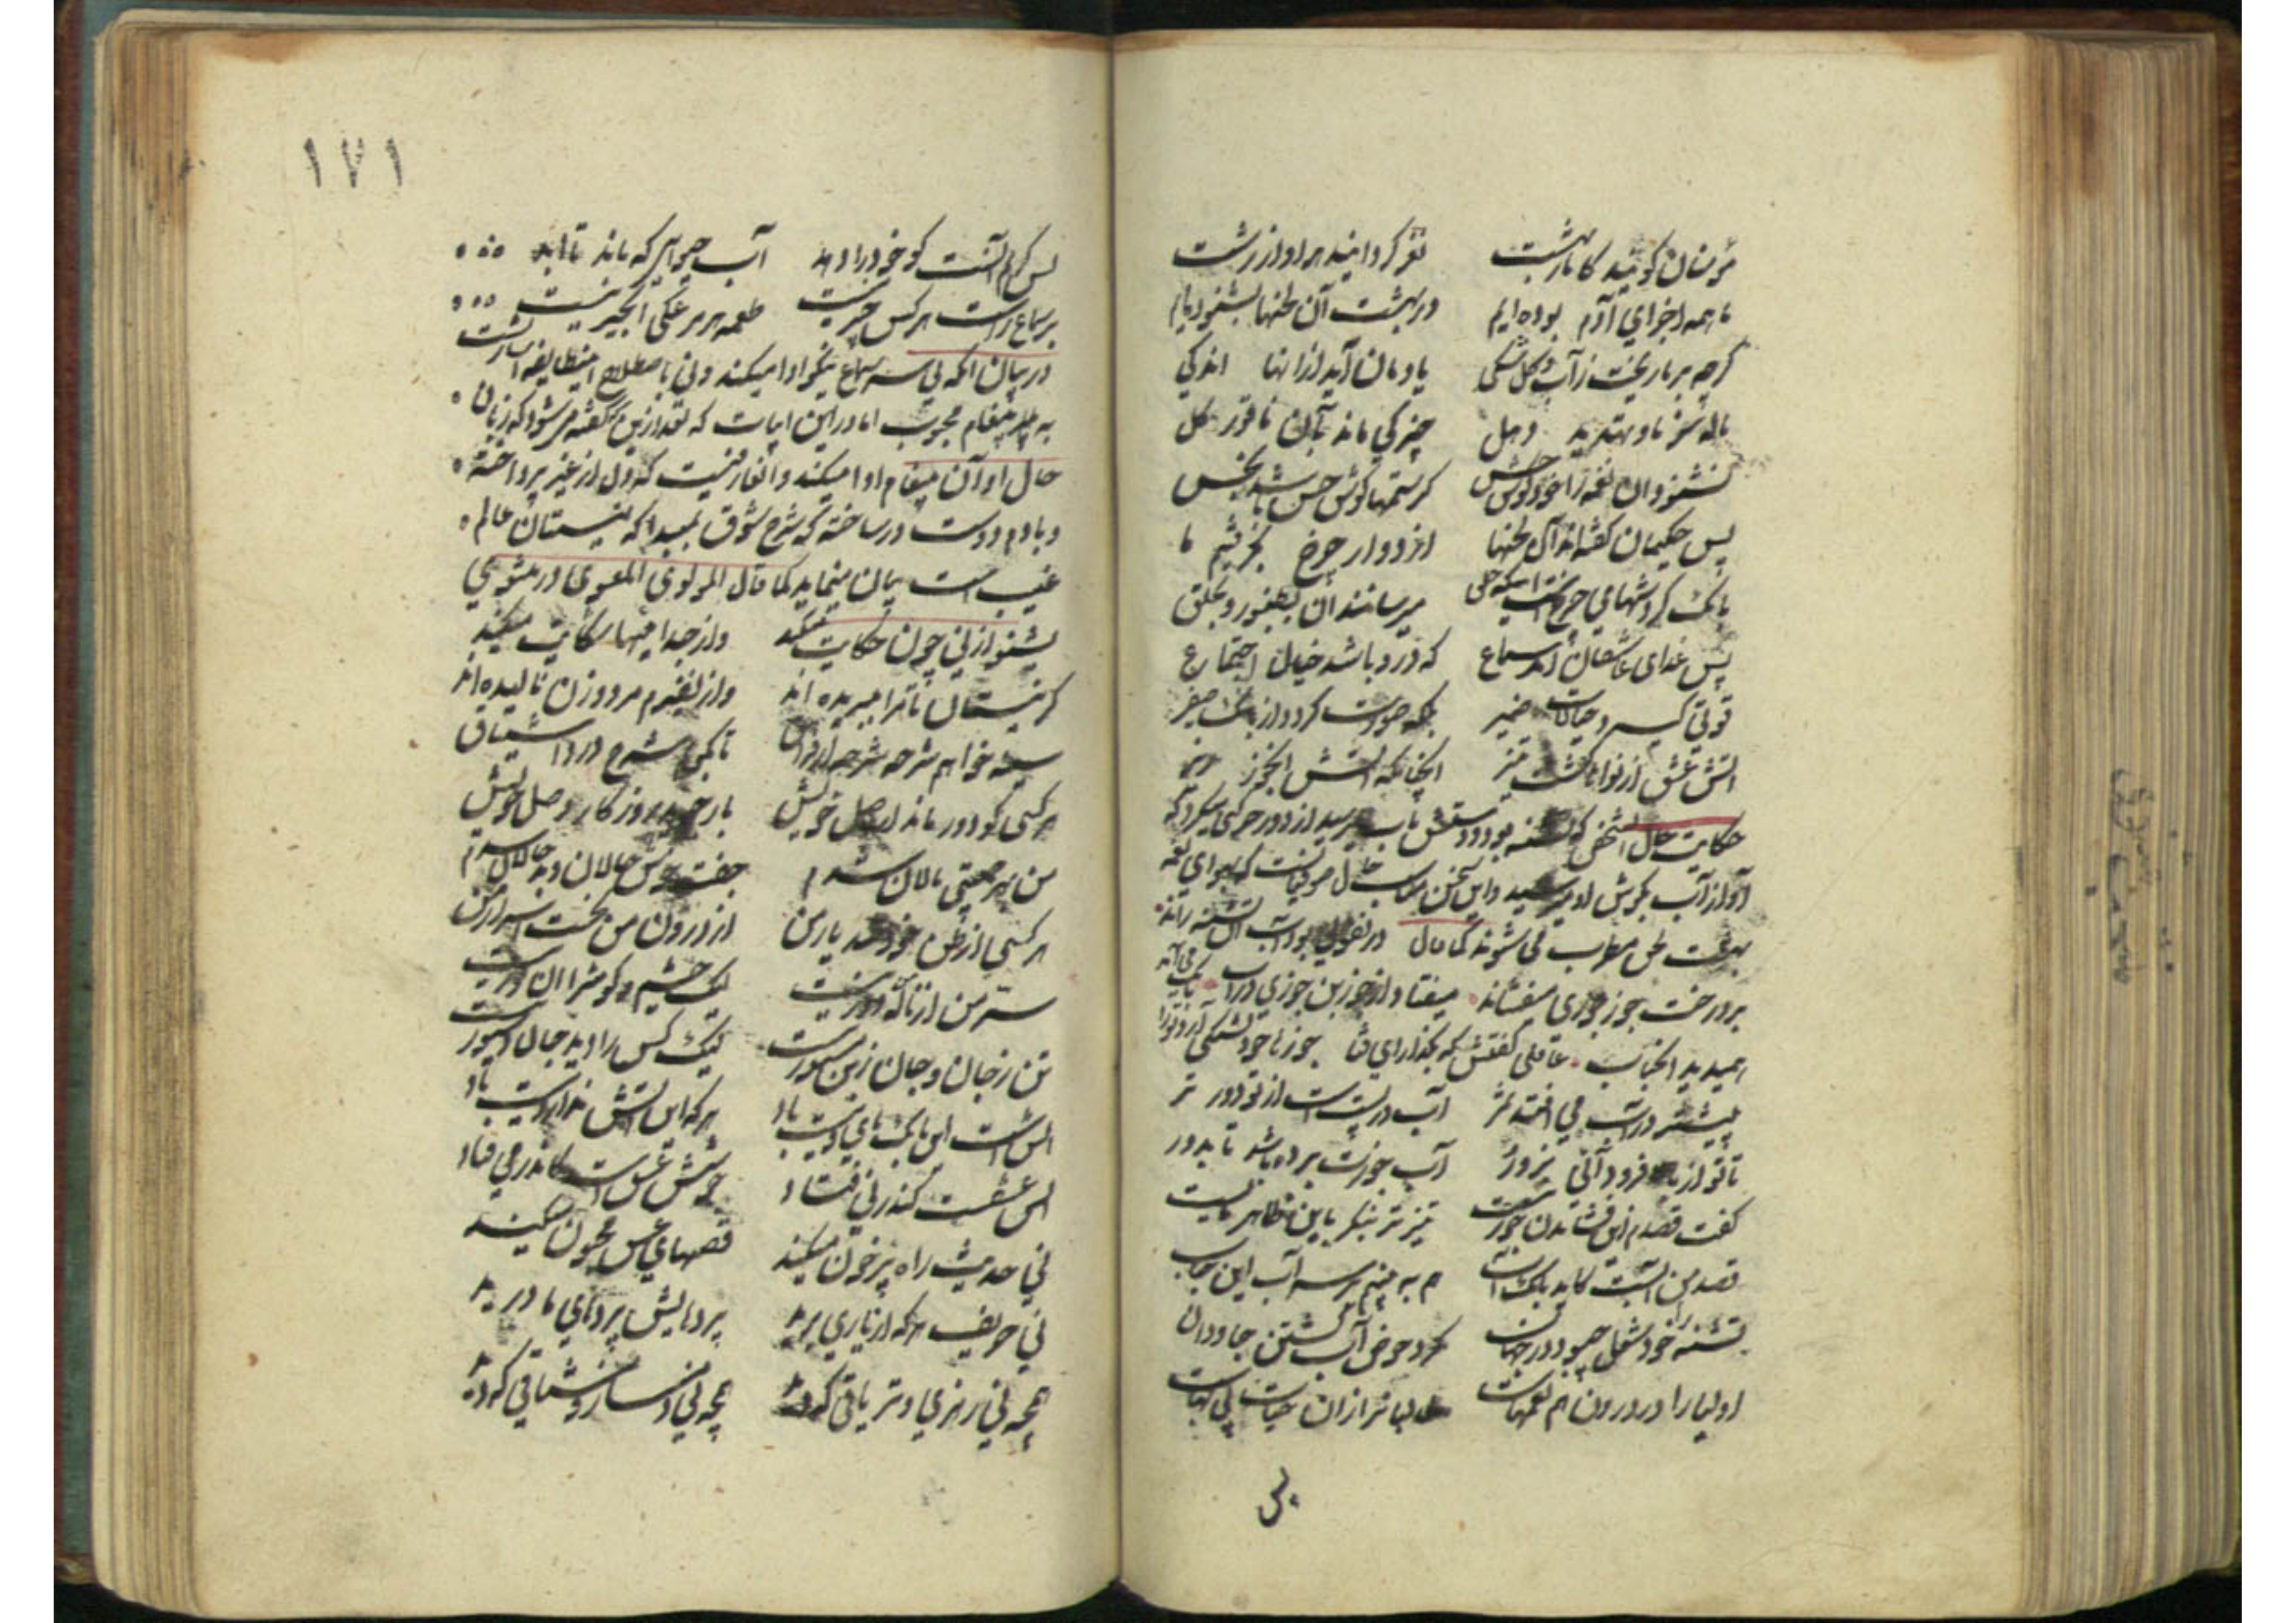 مؤمنان گویند کاثار بهشت نغز گردانید هر آواز زشت
ما همه اجزای آدم بوده‌ایم در بهشت آن لحنها بشنوده‌ایم
گرچه بر ما ریخت آب و گل شکی یادمان آید از آنها اندکی
ناله سرنا و تهدید دهل چیزکی ماند بآن ناقور کل
نشنود آن نغمه را خود گوش حس کز ستمها گوش حس باشد نجس
پس حکیمان گفته‌اند آن لحنها از دوار چرخ بگرفتیم ما
بانگ گردشهای چرخ است اینکه خلق میرسانند آن بطنبور و بحلق
پس غذای عاشقان آمد سماع که درو باشد خیال اجتماع
قوتی گیرد خیالات ضمیر بلکه صورت گردد از بانگ صفیر
آتش عشق از نواها گشت تیز آنچنانکه آتش آن جوز ریز
حکایت حال آن شخص که تشنه بود و دستش بآب نمیرسید از دور حرکتی میکرد که
آواز آب بگوش او میرسید و این سخن مناسب حال صوفیانست که بهوای نغمه
بر درخت جوز جوزی میفشاند میفتاد از جوزبن جوزی در آب بانگ می‌آمد
همیدید او حباب عاقلی گفتش که بگذار ای فتا جوزها خود تشنگی آرد ترا
بیشتر در آب می افتد ثمر آب در پستی است از تو دور تر
تا تو از بالا فرود آئی بزور آب جوزت برده باشد تا بدور
گفت قصدم زین فشاندن جوز نیست تیز تر بنگر باین ظاهر مایست
قصد من آنست کاید بانگ آب هم به بینم بر سر آب این حباب
تشنه را خود شغل چبود در جهان گرد حوض آب گشتن جاودان
اولیا را در درون هم نغمهاست طالبانرا زان حیات بی بهاست
۱۷۱
پس کریم آنست کو خود را دهد آب حیوانی که ماند تا ابد
بر سماع راست هر کس چیر نیست طعمه هر مرغکی انجیر نیست
در بیان آنکه نی سر سماع نیکو ادا میکند و نی باصطلاح این طایفه اشارتست
به پیغام محبوب اما درین ابیات که بعد ازین گفته میشود که زبان
حال او آن پیغام ادا میکند و آن عارفیست که دل از غیر پرداخته
و بادم دوست در ساخته که شرح شوق بمبدا که نیستان عالم
غیب است بیان مینماید کما قال المولوی المعنوی در مثنوی
بشنو از نی چون حکایت میکند و از جدائیها شکایت میکند
کز نیستان تا مرا ببریده اند و از نفیرم مرد و زن نالیده‌اند
سینه خواهم شرحه شرحه از فراق تا بگویم شرح درد اشتیاق
هر کسی کو دور ماند از اصل خویش باز جوید روزگار وصل خویش
من بهر جمعیتی نالان شدم جفت خوش حالان و بد حالان شدم
هر کسی از ظن خود شد یار من از درون من نجست اسرار من
سر من از ناله دور نیست لیک چشم و گوش را آن نور نیست
تن ز جان و جان ز تن مستور نیست لیک کس را دید جان دستور نیست
آتش است این بانگ نای و نیست باد هر که این آتش ندارد نیست باد
آتش عشقست کاندر نی فتاد جوشش عشق است کاندر می فتاد
نی حدیث راه پر خون میکند قصهای عشق مجنون میکند
نی حریف هر که از یاری برید پردهایش پردهای ما درید
همچو نی زهری و تریاقی که دید همچو نی دمساز و مشتاقی که دید